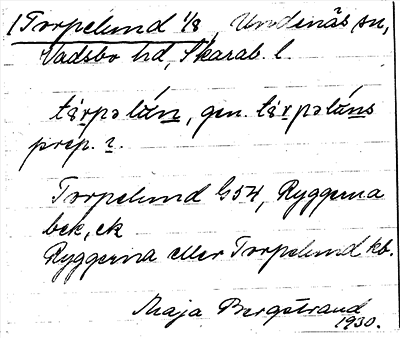 1 Torpelund 1/8, Undenäs sn,
Vadsbo hd, Skarab. l.
tårpəlún, gen. tårpəlúns
prep. i.
Torpelund G54, Ryggerna
bek, ek
Ryggerna eller Torpelund kb.
Maja Bergstrand
1930.